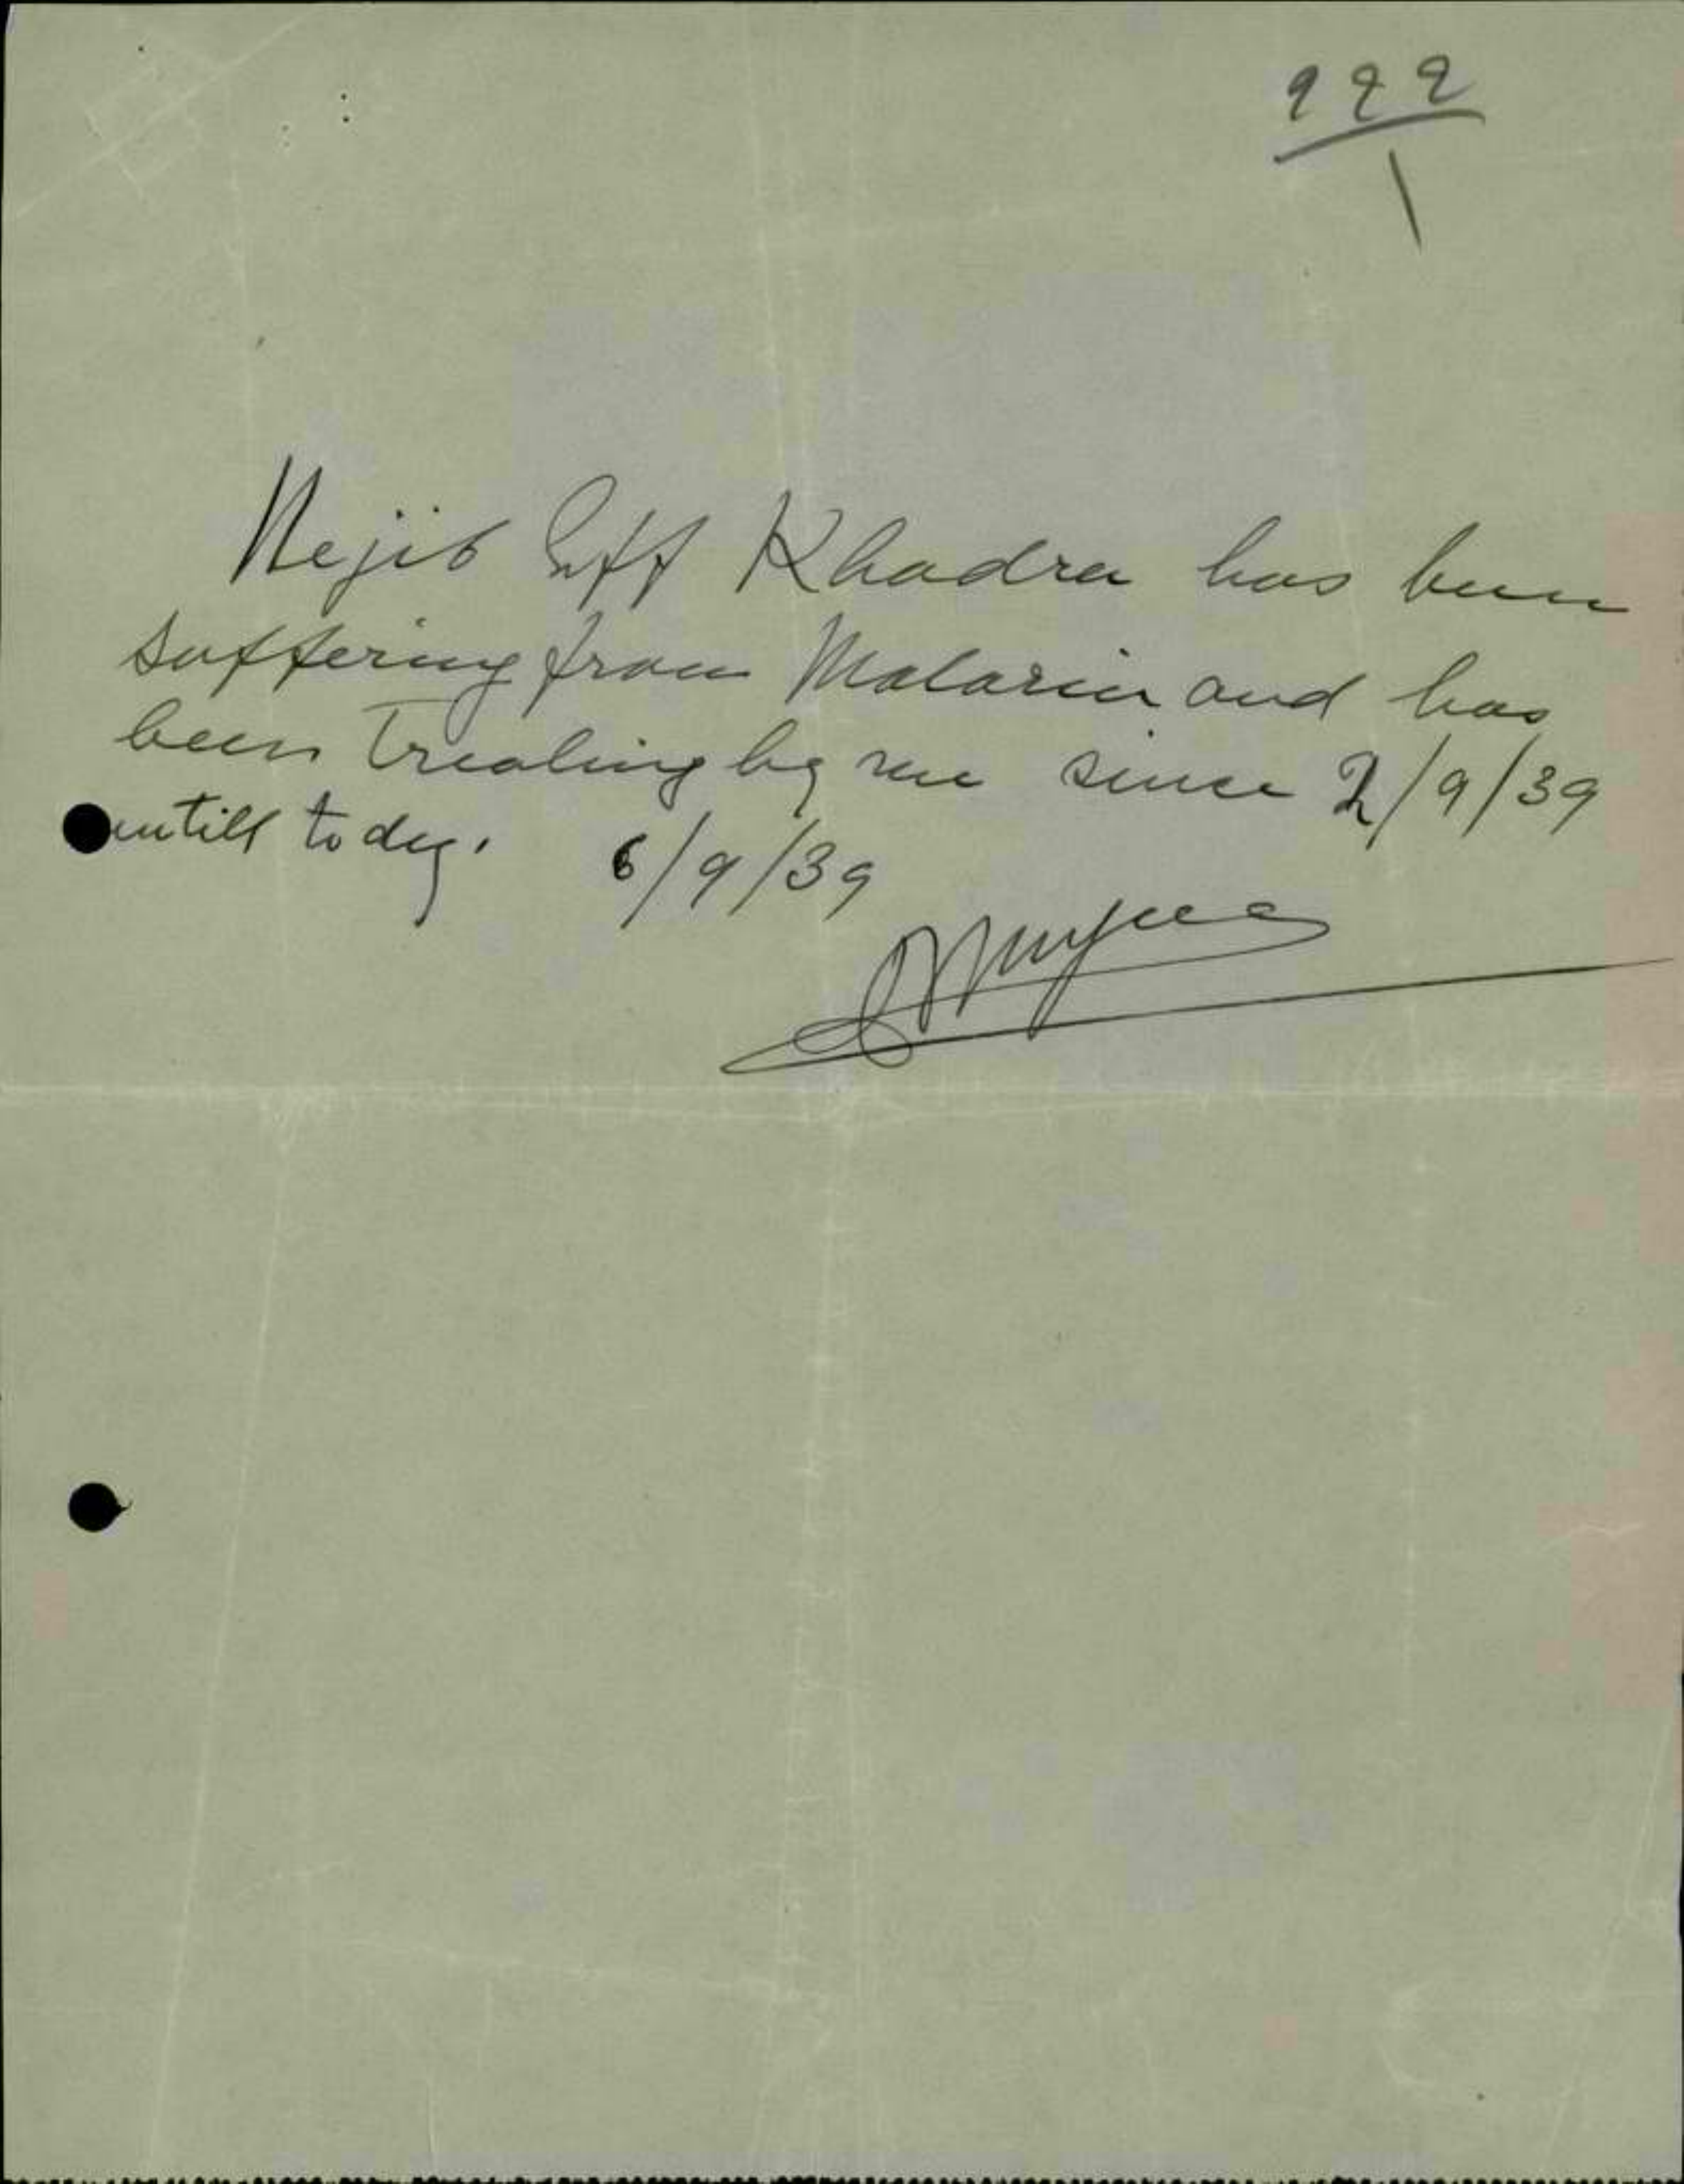 922
1
Nejib Eff Khadra has been
suffering from Malaria and has
been Treating by me since 2/9/39
untill today. 6/9/39